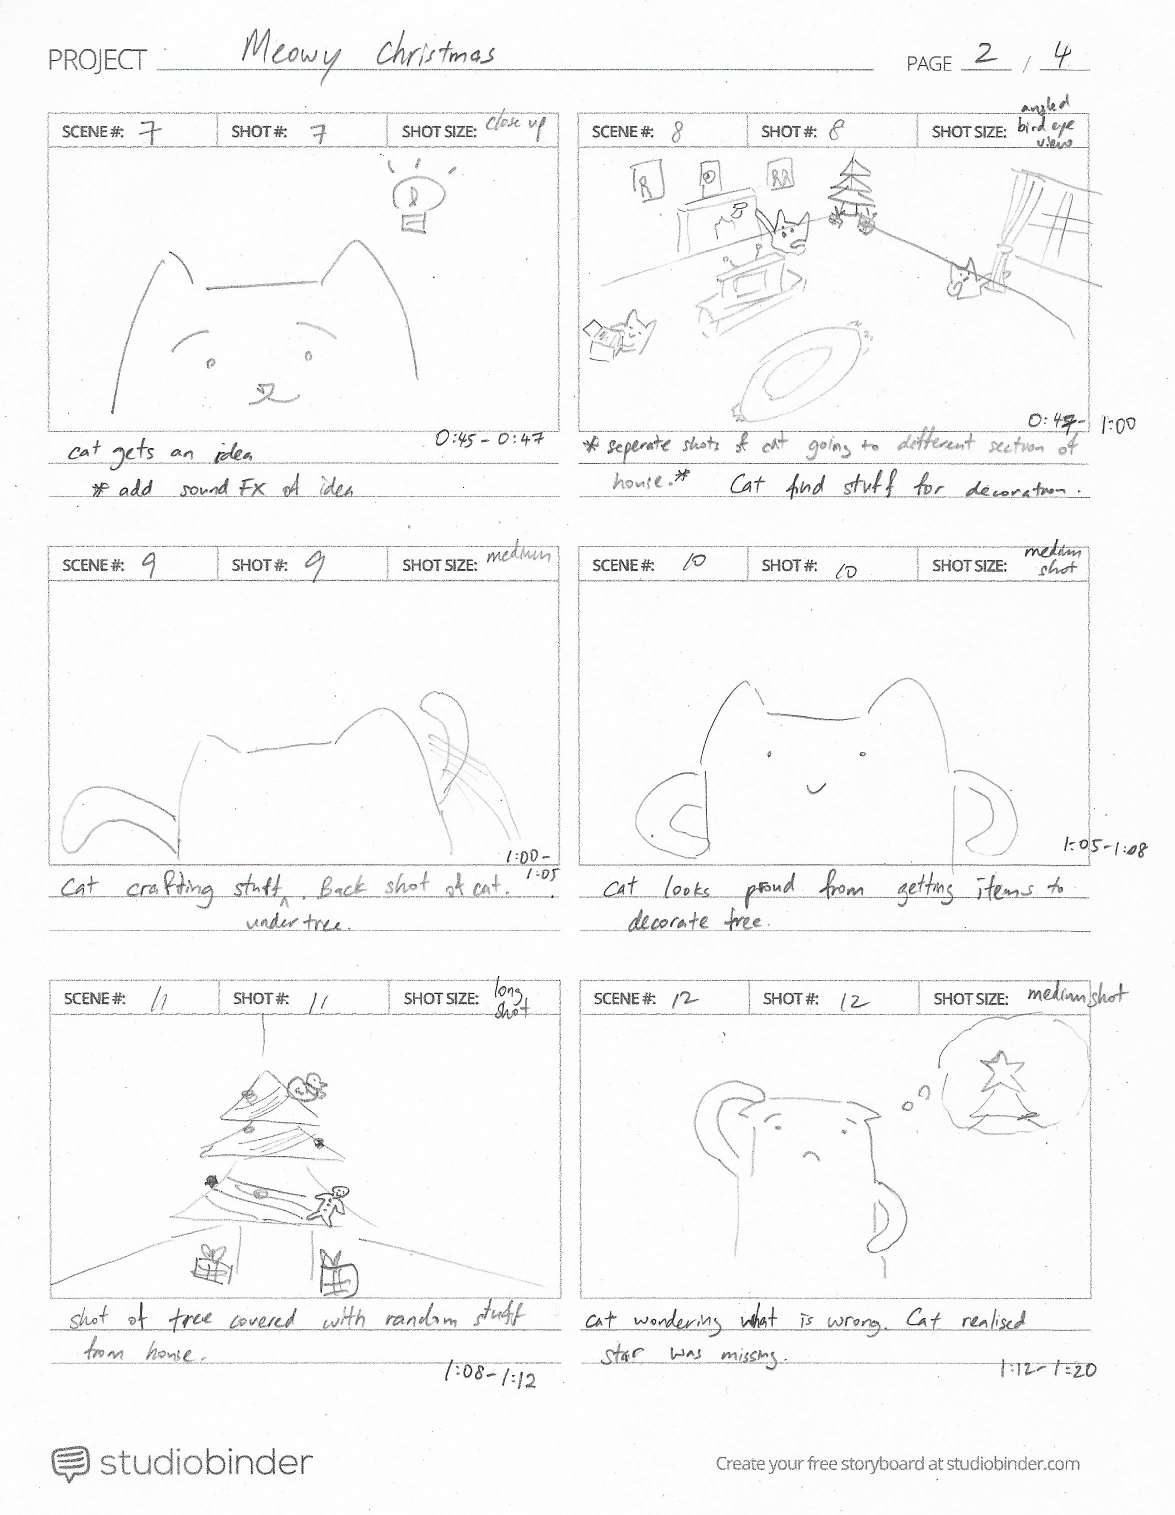 PROJECT Meowy Christmas PAGE 2 / 4
SCENE #: 7 SHOT #: 7 SHOT SIZE: close up
0:45 - 0:47
cat gets an idea
* add sound FX of idea
SCENE #: 8 SHOT #: 8 SHOT SIZE: angled
bird eye
view
0:47 - 1:00
* seperate shots of cat going to different section of
house.* Cat find stuff for decoration.
SCENE #: 9 SHOT #: 9 SHOT SIZE: medium
1:00 -
1:05
Cat crafting stuff ^ . Back shot of cat.
under tree.
SCENE #: 10 SHOT #: 10 SHOT SIZE: medium
shot
1:05 - 1:08
Cat looks proud from getting items to
decorate tree.
SCENE #: 11 SHOT #: 11 SHOT SIZE: long
shot
shot of tree covered with random stuff
from house.
1:08 - 1:12
SCENE #: 12 SHOT #: 12 SHOT SIZE: medium shot
cat wondering what is wrong. Cat realised
star was missing.
1:12 - 1:20
studiobinder
Create your free storyboard at studiobinder.com